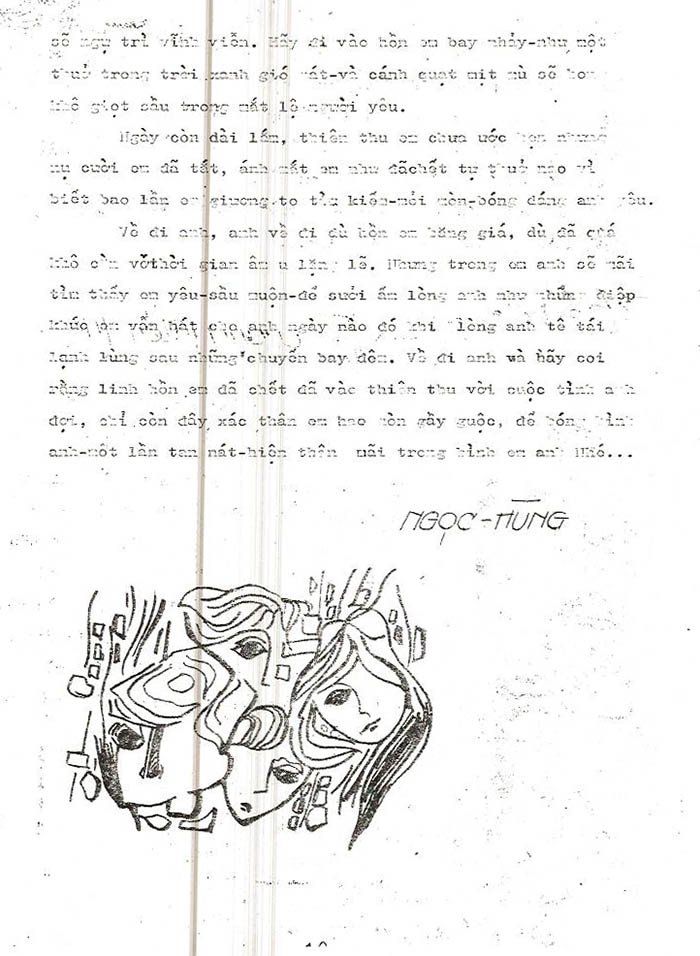 sẽ ngự trị vĩnh viễn. Hãy đi vào hồn em bay nhảy-như một
thuở trong trời xanh gió mát-và cánh quạt mịt mù sẽ hong
khô giọt sầu trong mắt lệ người yêu.
Ngày còn dài lắm, thiên thu em chưa ước hẹn nhưng
nụ cười em đã tắt, ánh mắt em như đãchết tự thuở nào vì
biết bao lần em giương to tìm kiếm-mỏi mòn-bóng dáng anh yêu.
Về đi anh, anh về đi dù hồn em băng giá, dù đã quá
khô cằn vớithời gian âm u lặng lẽ. Nhưng trong em anh sẽ mãi
tìm thấy em yêu-sầu muộn-để sưởi ấm lòng anh như những điệp
khúc em vẫn hát cho anh ngày nào đó khi lòng anh tê tái
lạnh lùng sau những chuyến bay đêm. Về đi anh và hãy coi
rằng linh hồn em đã chết đã vào thiên thu với cuộc tình anh
đợi, chỉ còn đây xác thân em hao mòn gầy guộc, để bóng hình
anh-một lần tan nát-hiện thân mãi trong hình em anh Nhé...
NGỌC-HÙNG